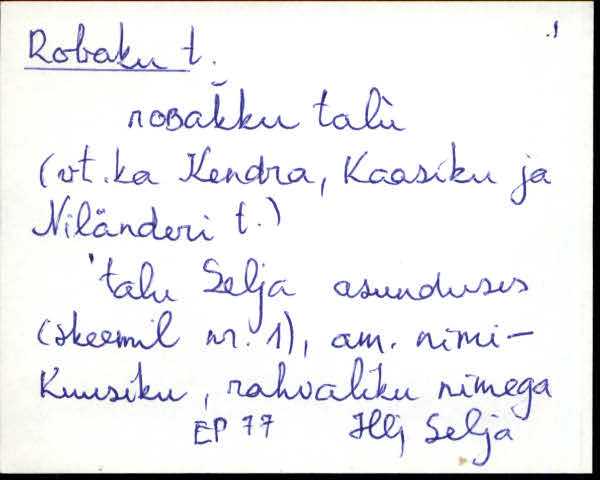 .1
Robaku t.
roʙak̆ku talù
(vt. ka Kendra, Kaasiku ja
Niländeri t.)
'talu Selja asunduses
(skeemil nr. 1), am. nimi –
Kuusiku, rahvaliku nimega
EP 77 Hlj Selja